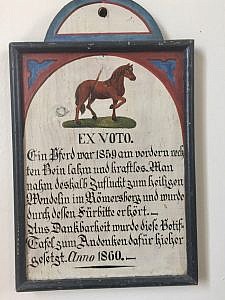 EX VOTO.
Ein Pferd war 1859 am vordern rech
ten Bein lahm und kraftlos. Man
nahm deshalb Zuflucht zum heiligen
Wendelin im Römersberg und wurde
durch dessen Fürbitte erhört.—
Aus Dankbarkeit wurde diese Votif-
Tafel zum Andenken dafür hieher
gesetzt. Anno 1860.—